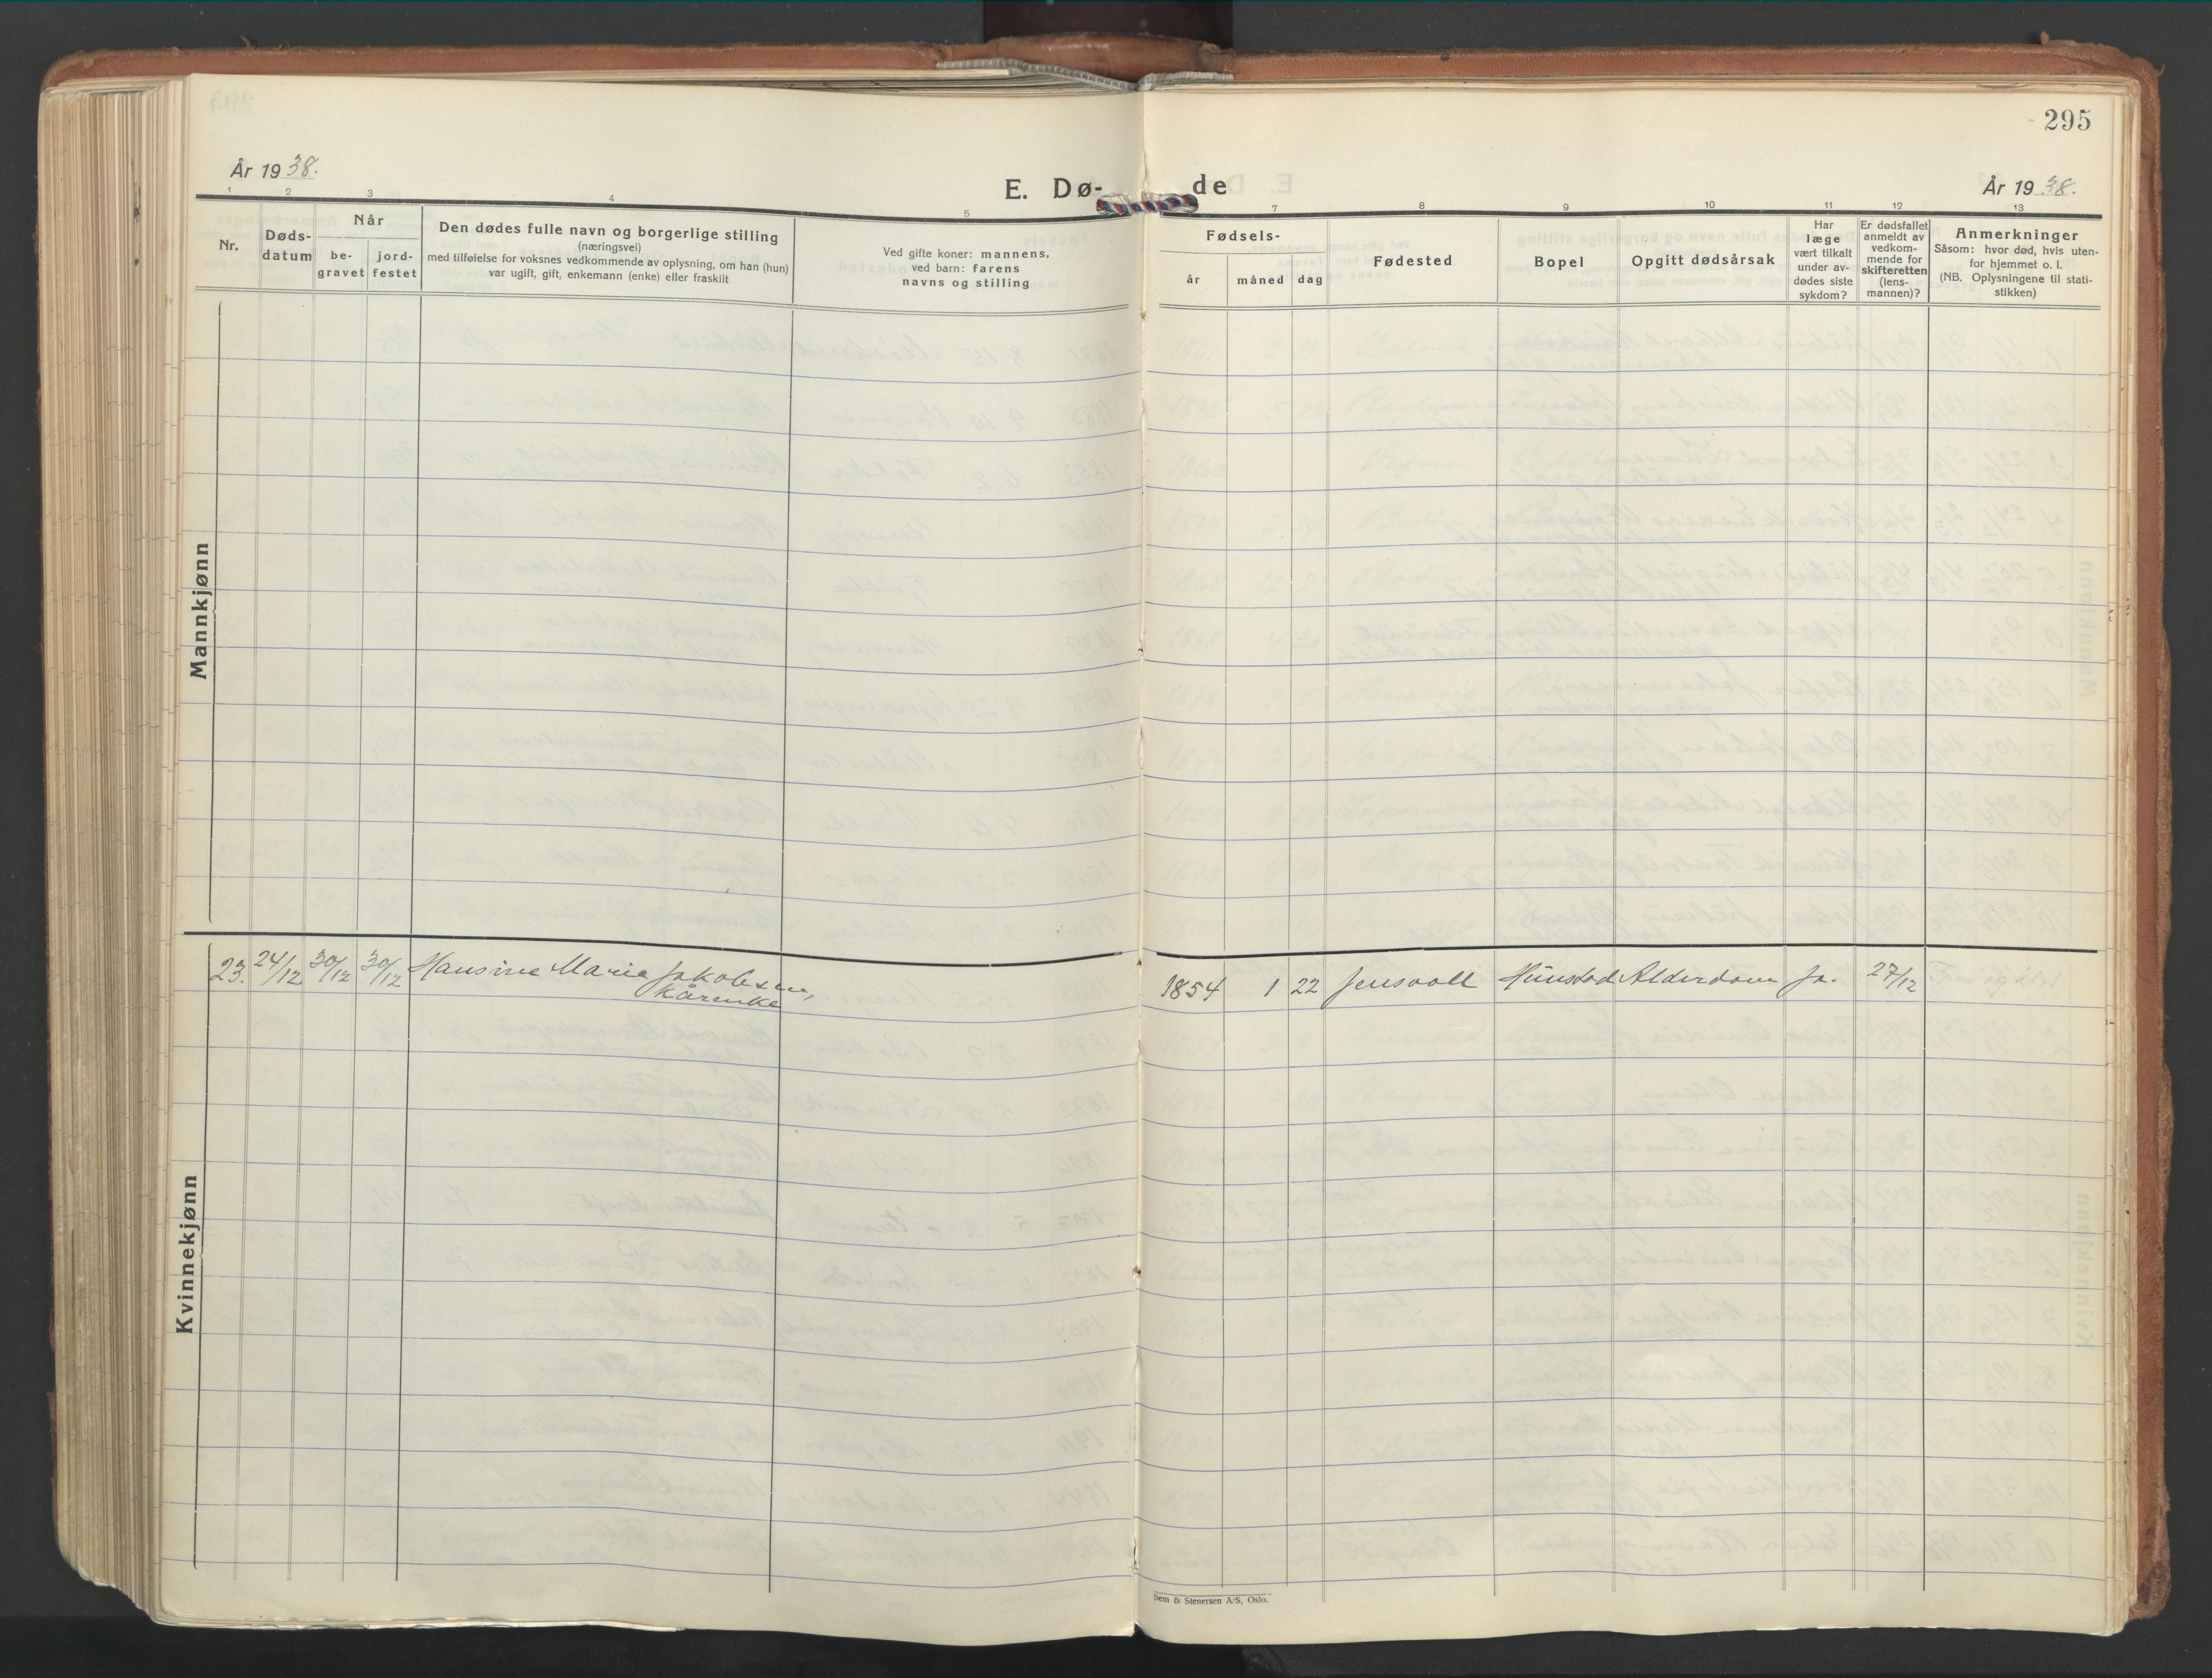 295
År 1938.
E. Dø-
de
År 1938.
1 2 3 4 5 7 8 9 10 11 12 13
Nr.
Døds-
datum
Når
be-
gravet
jord-
festet
Den dødes fulle navn og borgerlige stilling
(næringsvei)
med tilføielse for voksnes vedkommende av oplysning, om han (hun)
var ugift, gift, enkemann (enke) eller fraskilt
Ved gifte koner: mannens,
ved barn: farens
navns og stilling
Fødsels-
år
måned
dag
Fødested
Bopel
Opgitt dødsårsak
Har
læge
vært tilkalt
under av-
dødes siste
sykdom?
Er dødsfallet
anmeldt av
vedkom-
mende for
skifteretten
(lens-
mannen)?
Anmerkninger
Såsom: hvor død, hvis uten-
for hjemmet o. l.
(NB. Oplysningene til stati-
stikken)
Mannkjønn
Kvinnekjønn
23. 24/12 30/12 30/12 Hansine Marie Jakobsen,
kårenke
1854 1 22 Jensvoll Hunstad Alderdom Ja. 27/12
Sem & Stenersen A/S, Oslo.